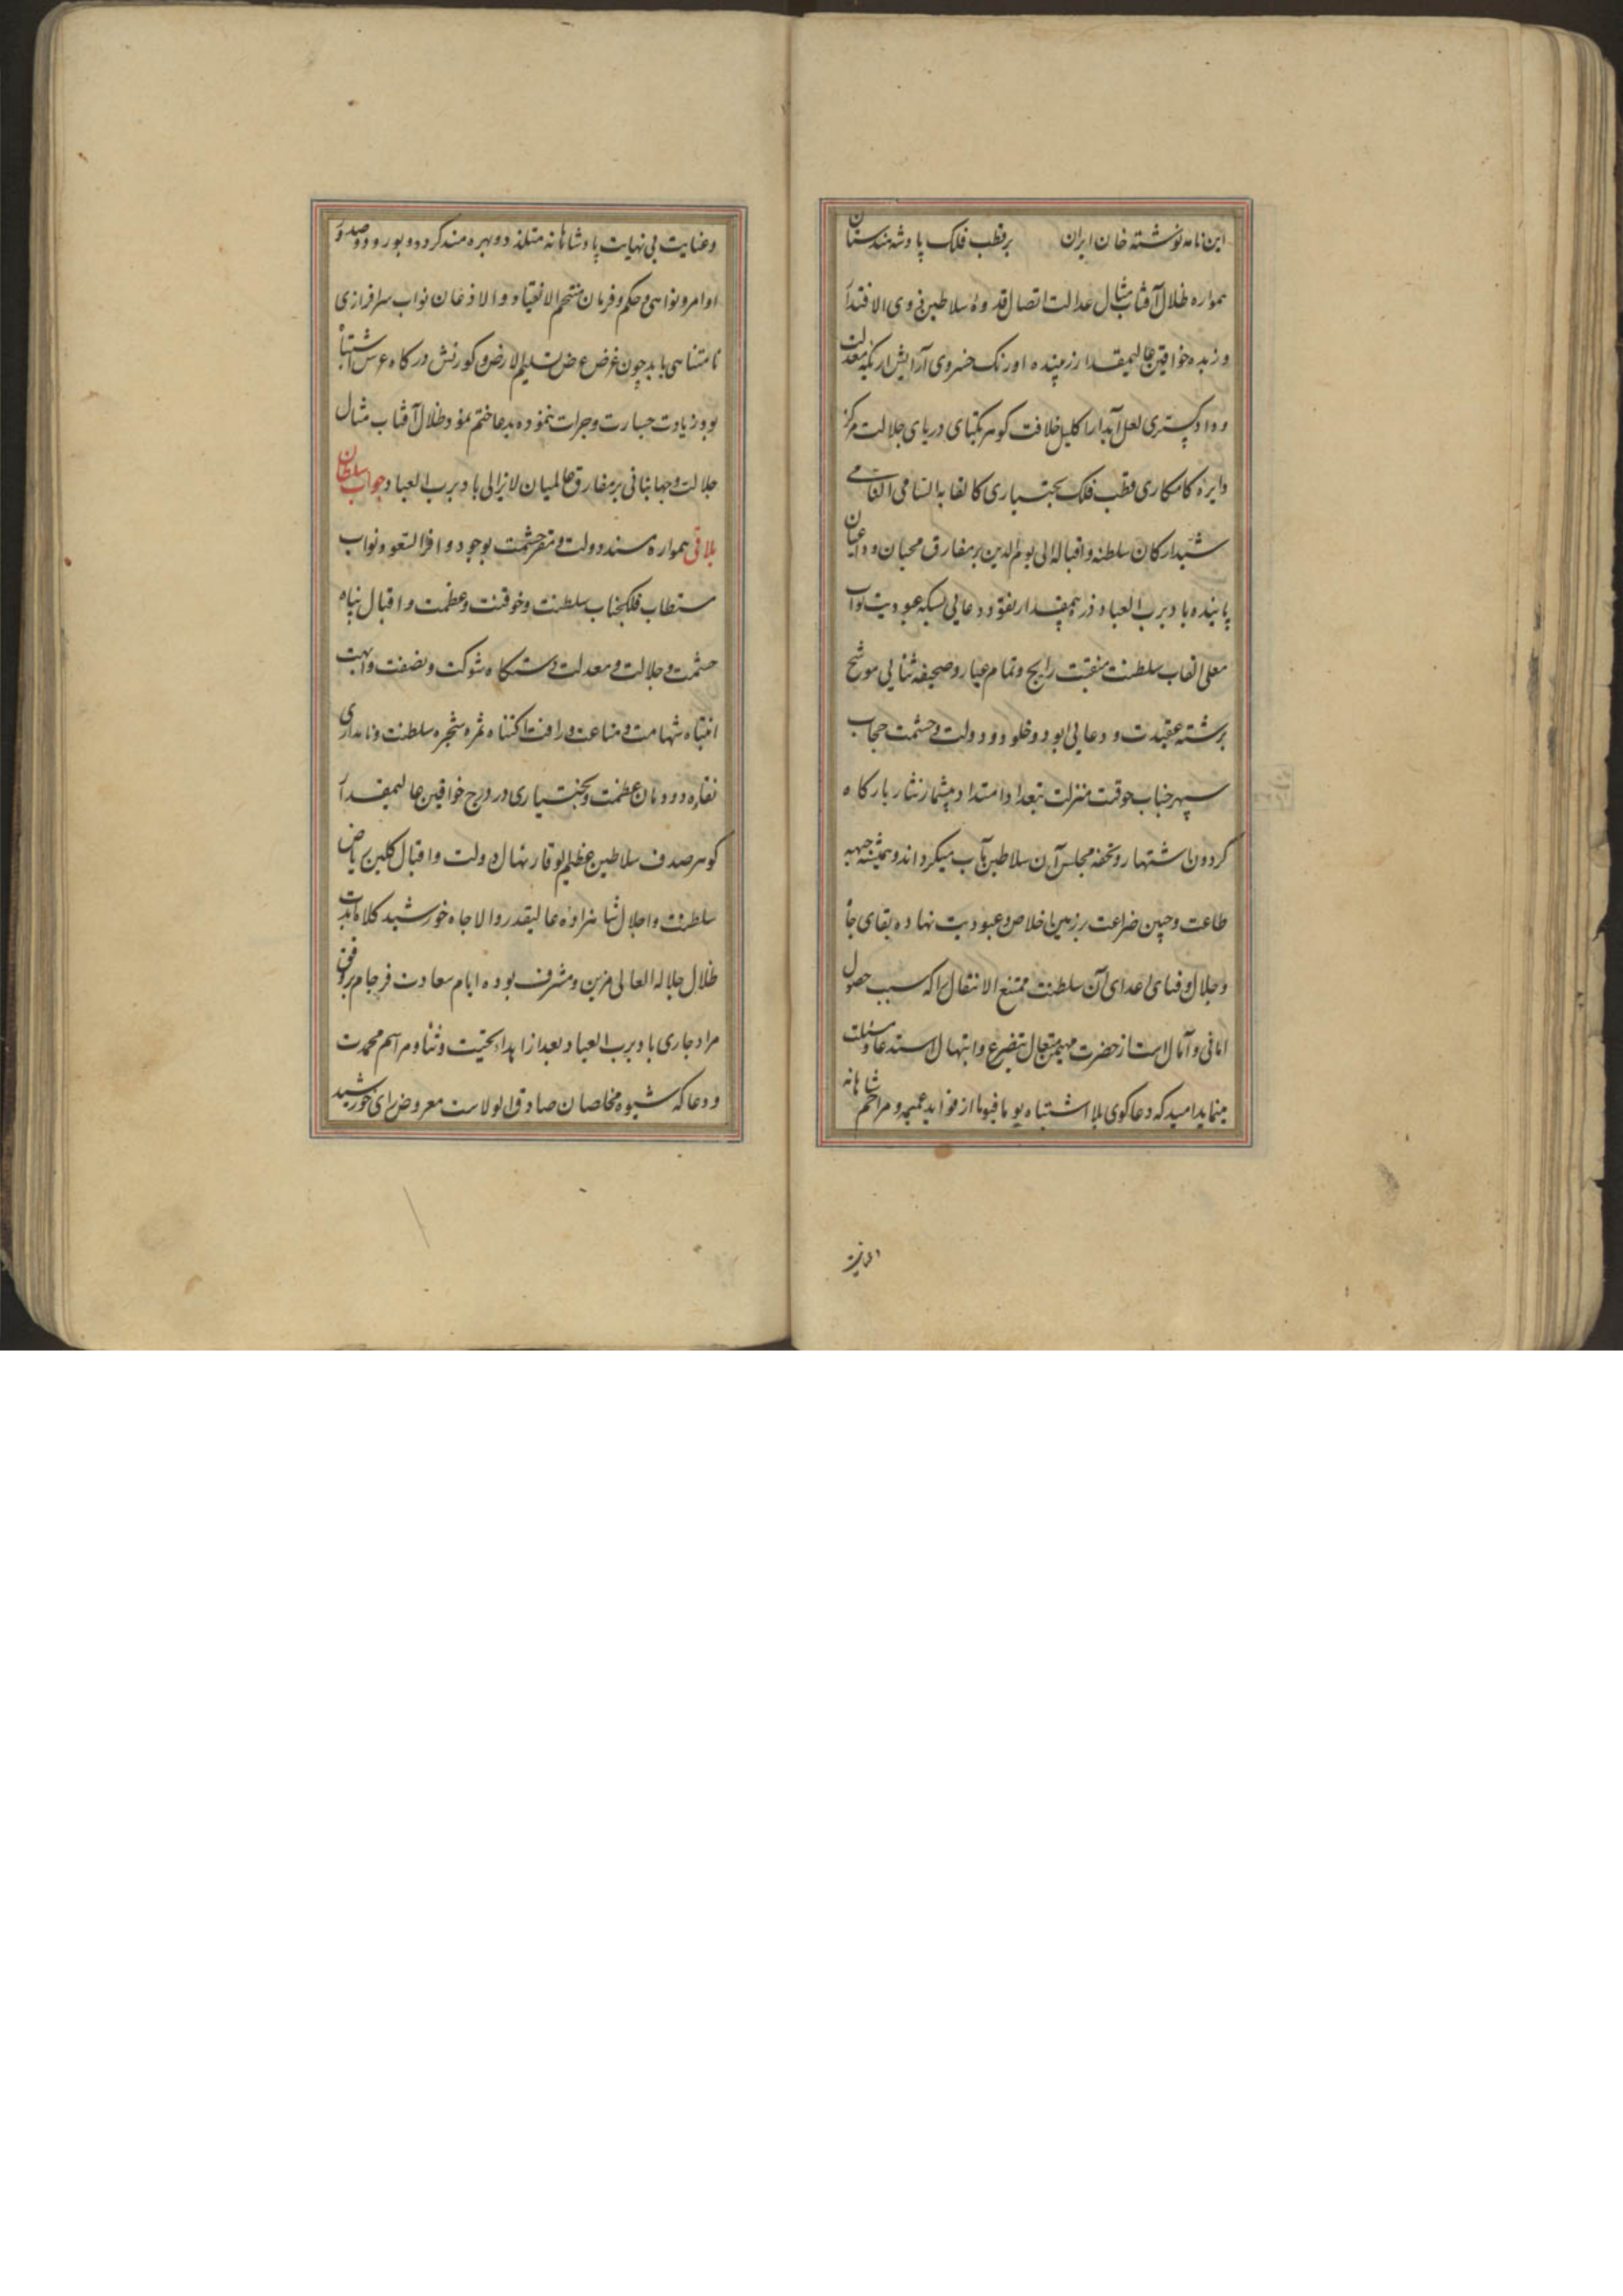 این نامه نوشته خان ایران بر قطب فلک پادشه هندستان
همواره ظلال آفتاب مثال عدالت اتصال قدوهٔ سلاطین ذوی الاقتدار
و زبده خواقین عالیمقدار زیبنده اورنک خسروی آرایش اریکه معدلت
و دادکستری لعل آبدار اکلیل خلافت کوهر یکتای دریای جلالت مرکز
دایره کامکاری قطب فلک بختیاری کالقابه السامی القاب
شید ارکان سلطنه و اقباله الی یوم الدین بر مفارق محبان و داعیان
پاینده باد برب العباد ذره بیمقدار نقود دعایی بسکه عبودیت نواب
معلی القاب سلطنت منقبت رایج و تمام عیار و صحیفه ثنایی موشح
برشته عقیدت و دعایی ابود و خلود دولت و حشمت حجاب
سپهر جناب خوقنت منزلت بتعداد امتداد بیشمار نثار بارکاه
کردون اشتهار و تحفه مجلس آن سلاطین مآب میکرداند و همیشه جبهه
طاعت و جبین ضراعت بر زمین اخلاص و عبودیت نهاده بقای جاه
و جلال و فنای اعدای آن سلطنت ممتنع الانتقال را که سبب حصول
امانی و آمال است از حضرت مهیمن متعال بتضرع و ابتهال استدعا و مسئلت
مینماید امید که دعاکوی بلا اشتباه یوما فیوما از فواید عمیمه و مراحم شاهانه
و عنایت بی نهایت پادشاهانه متلذذ و بهره مند کردد و بورود و صدور
اوامر و نواهی و حکم و فرمان متحتم الانقیاد و الاذعان نواب سرافرازی
نامتناهی یابد چون غرض عرض تسلیم الارض و کورنش درکاه عرش اشتباه
بود زیادت جسارت و جرات ننموده بدعا ختم نمود ظلال آفتاب مثال
جلالت و جهانبانی بر مفارق عالمیان لایزالی باد برب العباد جواب سلطان
بلاقی همواره مسند دولت و مقر حشمت بوجود وافر السعود نواب
مستطاب فلکجناب سلطنت و خوقنت و عظمت و اقبال پناه
حشمت و جلالت و معدلت دستکاه شوکت و نصفت و ابهت
انتباه شهامت و مناعت و رافت اکتناه ثمره شجره سلطنت و نامداری
نقاوه دودمان عظمت و بختیاری در درج خواقین عالیمقدار
کوهر صدف سلاطین عظیم الوقار نهال دولت و اقبال کلبن ریاض
سلطنت و اجلال شاهزاده عالیقدر والاجاه خورشید کلاه ابدت
ظلال جلاله العالی مزین و مشرف بوده ایام سعادت فرجام بر وفق
مراد جاری باد برب العباد بعد از اهداء تحیت و ثنا و مراسم محمدت
و دعا که شیوه مخلصان صادق الولاست معروض رای خورشید